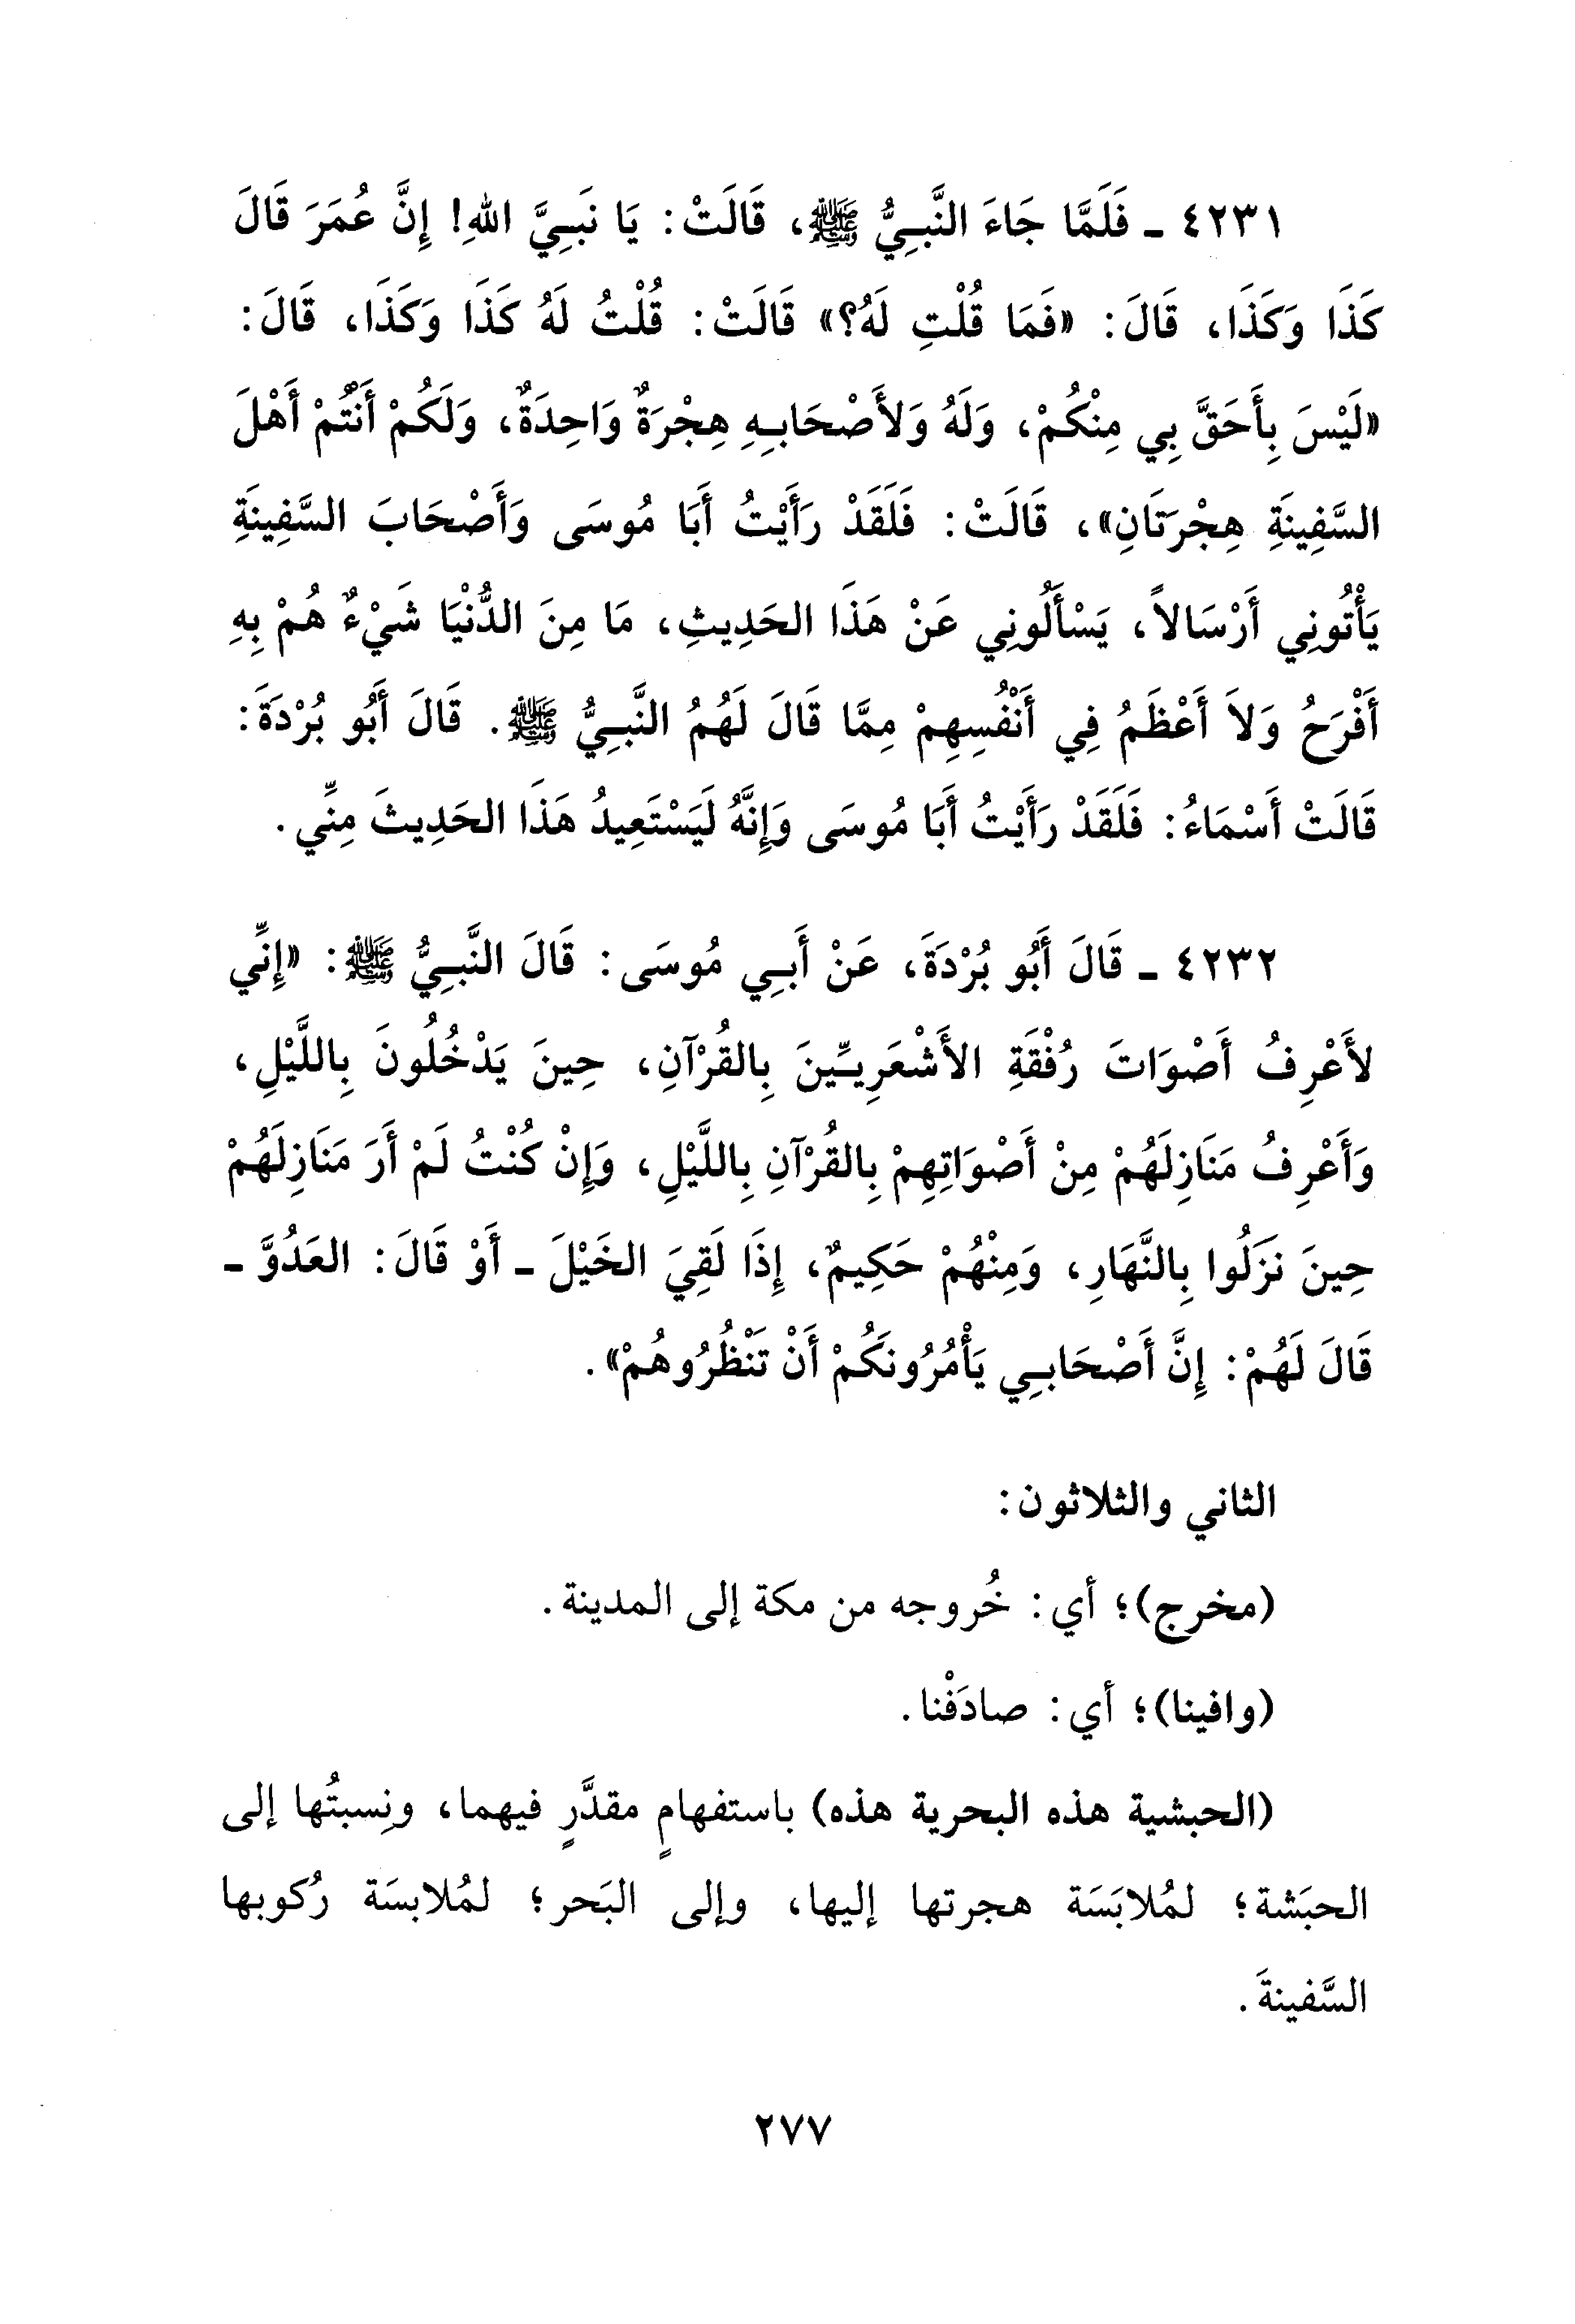 ٤٢٣١ ـ فَلَمَّا جَاءَ النَّبِيُّ ﷺ، قَالَتْ: يَا نَبِيَّ اللهِ! إِنَّ عُمَرَ قَالَ
كَذَا وَكَذَا، قَالَ: «فَمَا قُلْتِ لَهُ؟» قَالَتْ: قُلْتُ لَهُ كَذَا وَكَذَا، قَالَ:
«لَيْسَ بِأَحَقَّ بِي مِنْكُمْ، وَلَهُ وَلأَصْحَابِهِ هِجْرَةٌ وَاحِدَةٌ، وَلَكُمْ أَنْتُمْ أَهْلَ
السَّفِينَةِ هِجْرَتَانِ»، قَالَتْ: فَلَقَدْ رَأَيْتُ أَبَا مُوسَى وَأَصْحَابَ السَّفِينَةِ
يَأْتُونِي أَرْسَالاً، يَسْأَلُونِي عَنْ هَذَا الحَدِيثِ، مَا مِنَ الدُّنْيَا شَيْءٌ هُمْ بِهِ
أَفْرَحُ وَلاَ أَعْظَمُ فِي أَنْفُسِهِمْ مِمَّا قَالَ لَهُمُ النَّبِيُّ ﷺ. قَالَ أَبُو بُرْدَةَ:
قَالَتْ أَسْمَاءُ: فَلَقَدْ رَأَيْتُ أَبَا مُوسَى وَإِنَّهُ لَيَسْتَعِيدُ هَذَا الحَدِيثَ مِنِّي.
٤٢٣٢ ـ قَالَ أَبُو بُرْدَةَ، عَنْ أَبِي مُوسَى: قَالَ النَّبِيُّ ﷺ: «إِنِّي
لأَعْرِفُ أَصْوَاتَ رُفْقَةِ الأَشْعَرِيِّينَ بِالقُرْآنِ، حِينَ يَدْخُلُونَ بِاللَّيْلِ،
وَأَعْرِفُ مَنَازِلَهُمْ مِنْ أَصْوَاتِهِمْ بِالقُرْآنِ بِاللَّيْلِ، وَإِنْ كُنْتُ لَمْ أَرَ مَنَازِلَهُمْ
حِينَ نَزَلُوا بِالنَّهَارِ، وَمِنْهُمْ حَكِيمٌ، إِذَا لَقِيَ الخَيْلَ ـ أَوْ قَالَ: العَدُوَّ ـ
قَالَ لَهُمْ: إِنَّ أَصْحَابِي يَأْمُرُونَكُمْ أَنْ تَنْظُرُوهُمْ».
الثاني والثلاثون:
(مخرج)؛ أي: خُروجه من مكة إلى المدينة.
(وافينا)؛ أي: صادَفْنا.
(الحبشية هذه البحرية هذه) باستفهامٍ مقدَّرٍ فيهما، ونِسبتُها إلى
الحبَشة؛ لمُلابَسَة هجرتها إليها، وإلى البَحر؛ لمُلابسَة رُكوبها
السَّفينةَ.
٢٧٧